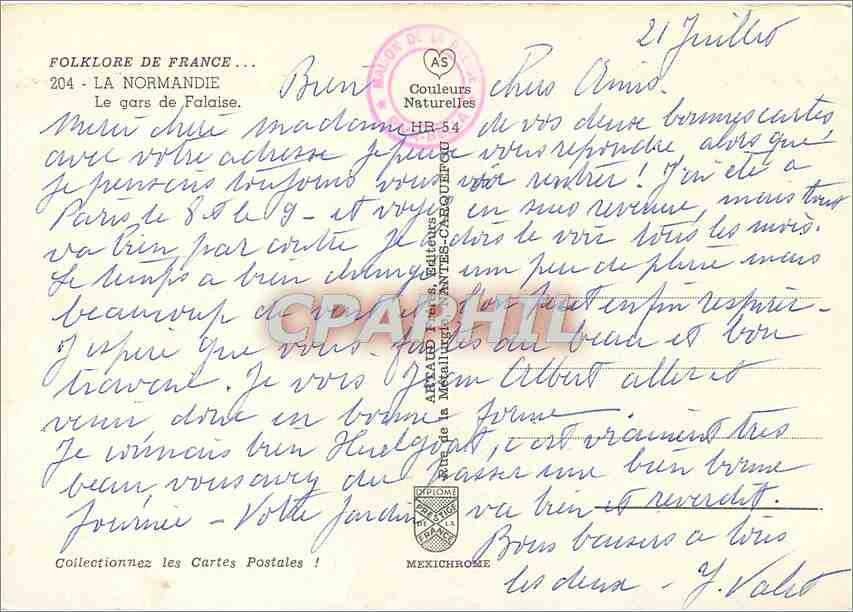 21 Juillet
FOLKLORE DE FRANCE...
204 - LA NORMANDIE
Le gars de Falaise.
MAISON DE LA
AS
Couleurs
Naturelles
HR-54
Bien chers Amis.
Merci chère madame de vos deux bonnes cartes
avec votre adresse je peux vous répondre, alors que
je pensais toujours vous voir rentrer! J'ai été à
Paris le 8 et le 9 - et voyez en suis revenue, mais tout
va bien, par contre je dois le voir tous les mois.
Le temps a bien changé, un peu de pluie mais
beaucoup de vent et l'on peut enfin respirer -
J'espère que vous faites du beau et bon
travail. Je vois Jean Albert aller et
venir donc en bonne forme
Je connais bien Huelgoat, c'est vraiment très
beau, vous avez du passer une bien bonne
journée - Votre jardin va bien et reverdit.
Bons baisers à tous
les deux - J. Valet
ARTAUD Frères, Editeurs
Rue de la Métallurgie, NANTES-CARQUEFOU
CPARPHIL
DIPLOME
PRESTIGE
DE LA
FRANCE
Collectionnez les Cartes Postales !
MEXICHROME